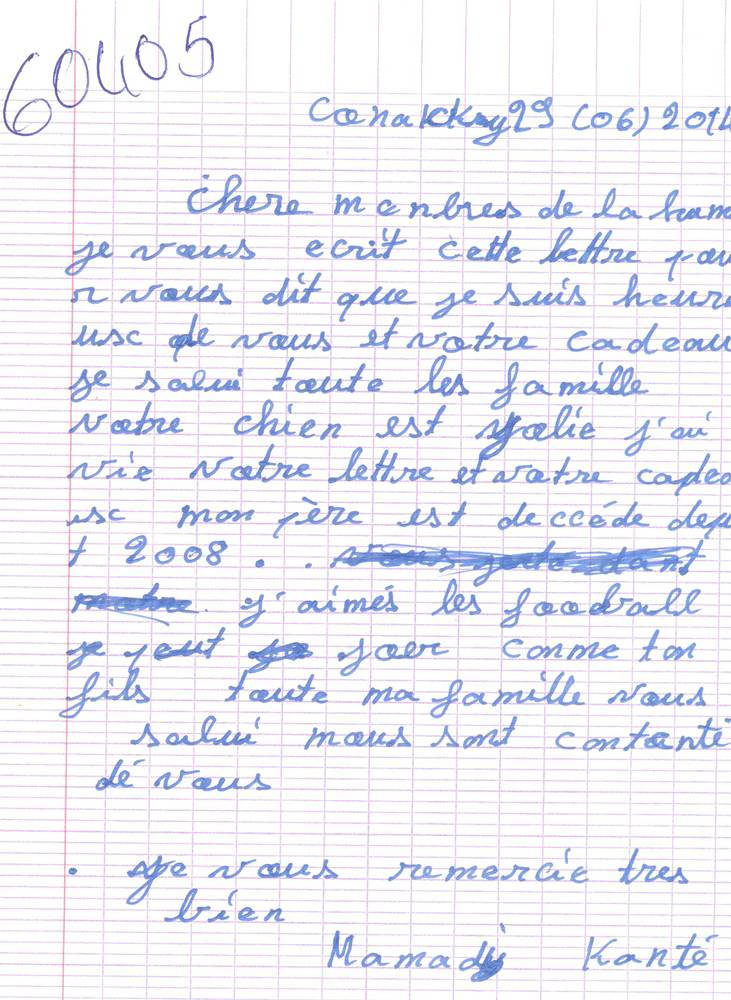 60405
Conakky 29 (06) 2014
Chere menbres de la fam
je vous ecrit cette lettre pou
r vous dit que je suis heure
use de vous et votre cadeau
je salui toute les famille
votre chien est yolie j'ai
vie votre lettre et votre cadea
use mon père est deccéde depu
t 2008 . .
j'aimés les foodball
je peut joer conme ton
fils toute ma famille vous
salui mous sont contanté
dé vous
. Je vous remercie tres
bien
Mamady Kanté